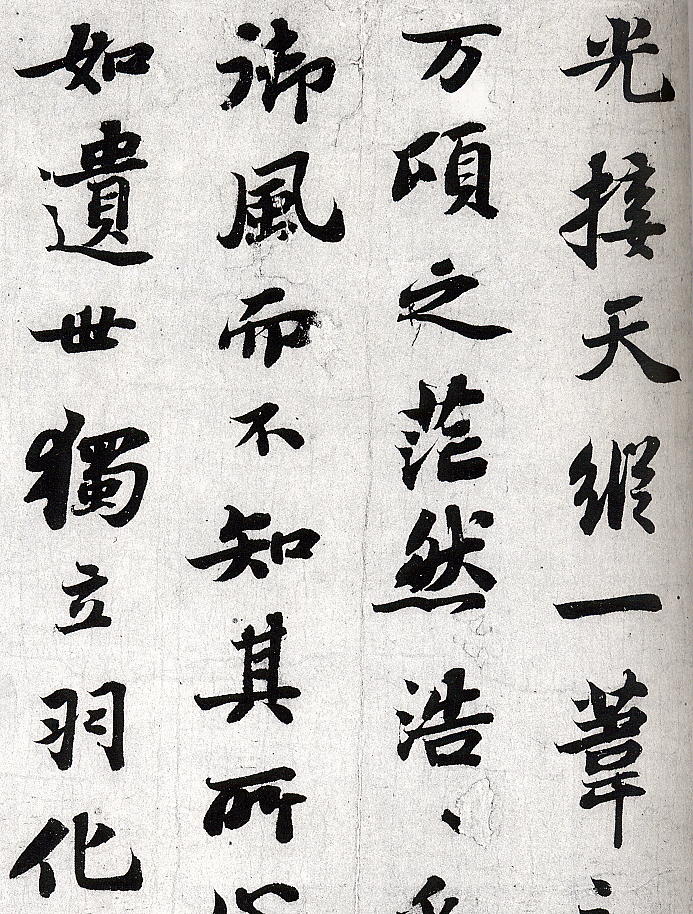 光接天縱一葦
万頃之茫然浩、
御風而不知其所
如遺世獨立羽化